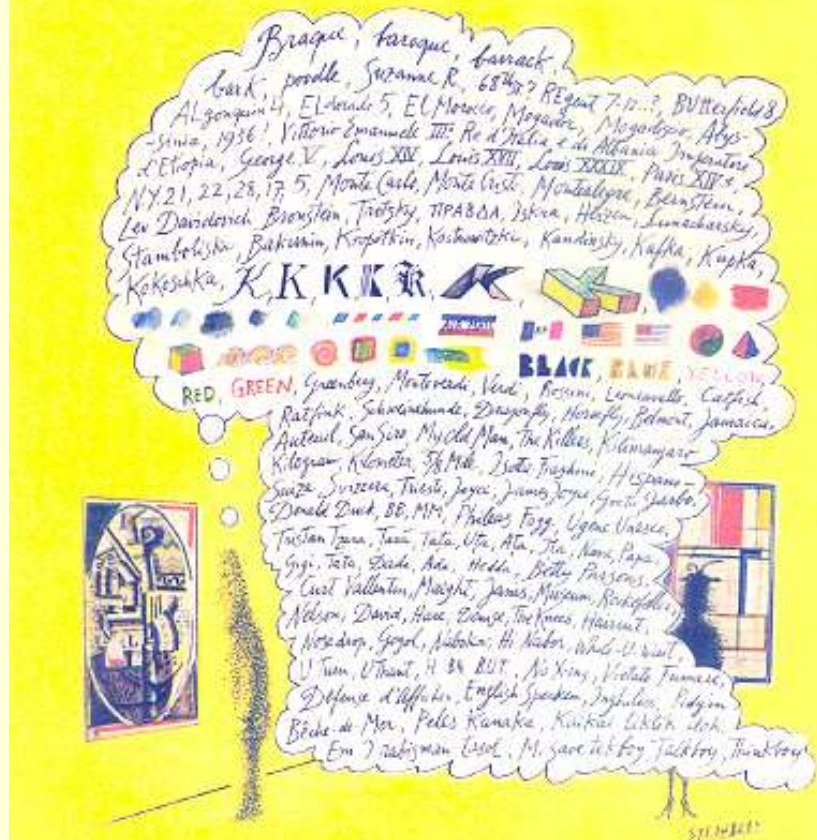 Braque, baroque, barrack,
bark, poodle, Suzanne R., 68th St? REgent 7-12..?, BUtterfield 8
ALgonquin 4, ELdorado 5, EL Morocco, Mogador, Mogadiscio, Abys-
-sinia, 1936! Vittorio Emanuele III° Re d'Italia e di Albania Imperatore
d'Etiopia, George V, Louis XIV, Louis XVII, Louis XXXIX, Paris XIVe,
N.Y. 21, 22, 28, 17, 5, Monte Carlo, Monte Cristi, Montealegre, Bernstein,
Lev Davidovich Bronstein, Trotzky, ПРАВДА, Iskra, Herzen, Lunacharsky,
Stambolisky, Bakunin, Kropotkin, Kostrowitzky, Kandinsky, Kafka, Kupka,
Kokoschka, K, K, K, K, K, K,
BLACK, BLUE YELLOW
RED, GREEN, Greenberg, Monteverdi, Verdi, Rossini, Leoncavallo, Catfish,
Ratfink, Schweinehunde, Dragonfly, Horsefly, Belmont, Jamaica,
Auteuil, San Siro, My Old Man, The Killers, Kilimanjaro
Kilogram, Kilometer, 5/8 Mile, Isotta Fraschini, Hispano-
Suiza, Svizzera, Trieste, Joyce, James Joyce, Greta Garbo,
Donald Duck, BB, MM, Phileas Fogg, Ugene Unesco,
Tristan Tzara, Tata, Uta, Ata, Nana, Papa,
Gigi, Tata, Dada, Ada, Hedda, Betty Parsons,
Curt Vallentin, Maeght, Janis, Museum, Rockefeller,
Nelson, David, Hare, Denise, The Knees, Harriet,
Nosedrop, Gogol, Nabokov, Hi Nabor, While-U-Wait,
U Turn, U Thant, BUT, No X-ing, Vietato Fumare,
Défense d'Afficher, English Spoken, Pidgin
Bêche-de-Mer, Kanaka,
Talkboy, Thinkboy
STEINBERG